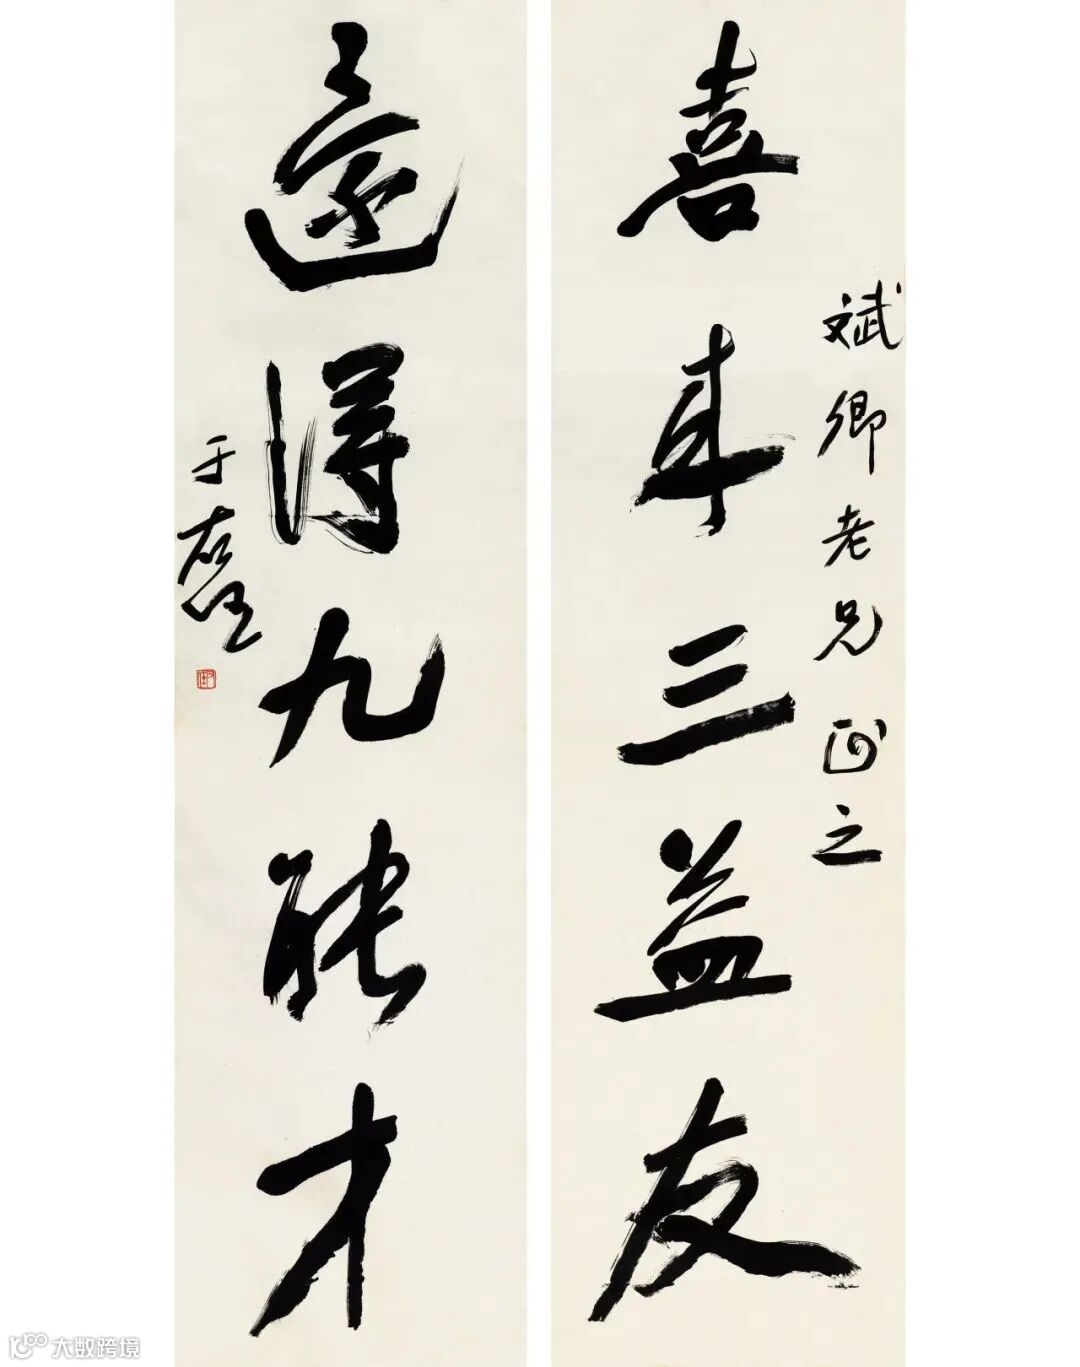 斌卿老兄正之
喜來三益友
還得九能才
于右任
右任
大数跨境